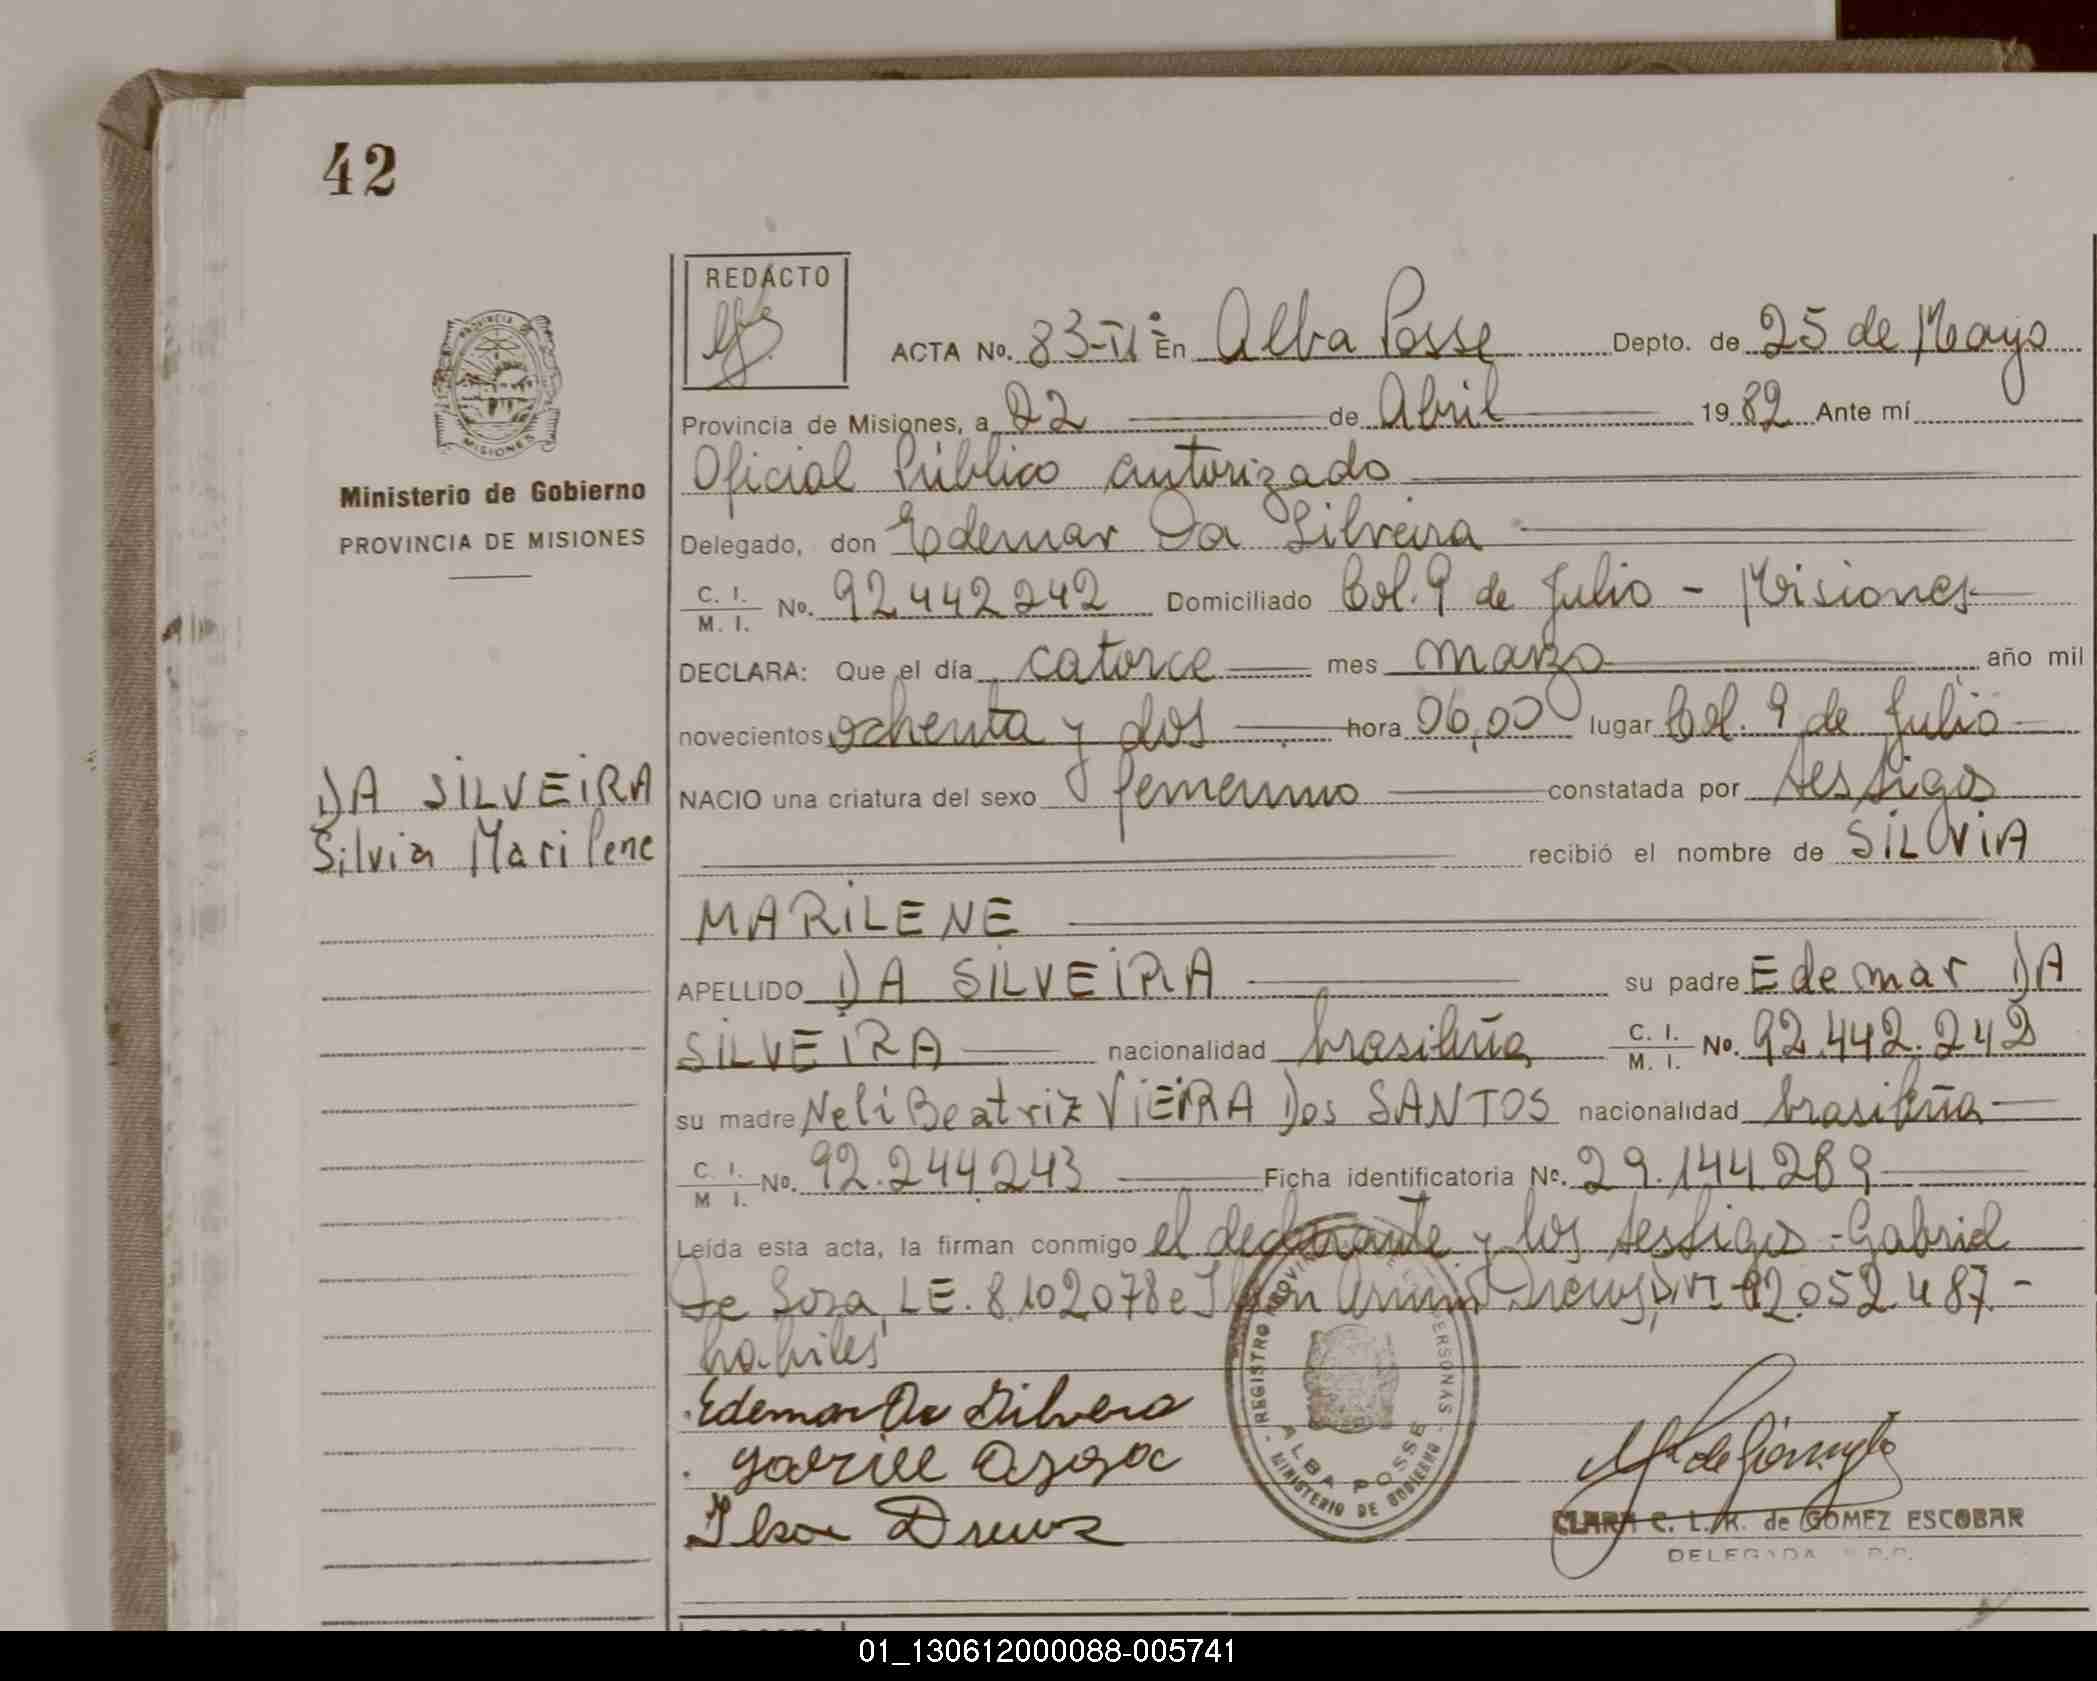 42
REDACTO
ACTA No. 83-II° En Alba Posse Depto. de 25 de Mayo
Provincia de Misiones, a 22 de Abril 1982 Ante mí
Oficial Público autorizado
Ministerio de Gobierno
PROVINCIA DE MISIONES
Delegado, don Edemar Da Silveira
C. I. / M. I. No. 92442242 Domiciliado Col. 9 de Julio - Misiones
DECLARA: Que el día catorce mes marzo año mil
novecientos ochenta y dos hora 06,00 lugar Col. 9 de Julio
DA SILVEIRA
Silvia Marilene
NACIO una criatura del sexo femenino constatada por testigos
recibió el nombre de SILVIA
MARILENE
APELLIDO DA SILVEIRA su padre Edemar DA
SILVEIRA nacionalidad brasileña C. I. / M. I. No. 92.442.242
su madre Neli Beatriz VIEIRA Dos SANTOS nacionalidad brasileña
C. I. / M I. No. 92.244.243 Ficha identificatoria No. 29.144.289
Leída esta acta, la firman conmigo el declarante y los testigos - Gabriel
De Sosa, LE. 8.102.078 e 92.052.487.-
habiles
Edemar Da Silvera
Ilson Drews
REGISTRO PROVINCIAL DE LAS PERSONAS
ALBA POSSE
MINISTERIO DE GOBIERNO
CLARA C. L. K. de GOMEZ ESCOBAR
DELEGADA R.P.P.
PROVINCIA DE MISIONES
01_130612000088-005741